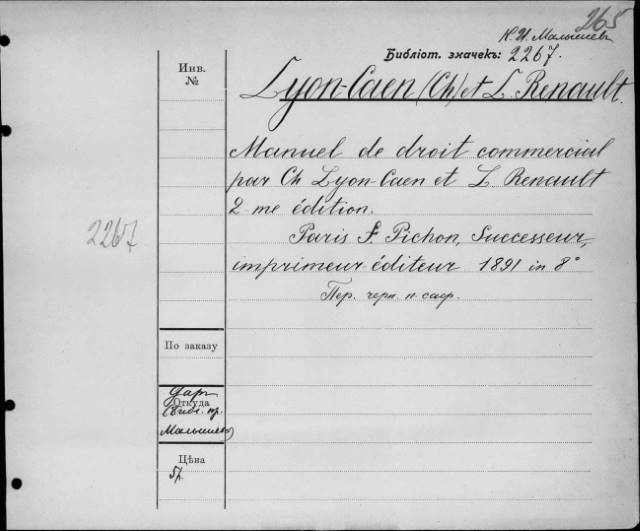 265
К. И. Малышевъ
Библіот. значекъ: 2267.
Инв.
№
Lyon-Caen (Ch) et L. Renault.
Manuel de droit commercial
par Ch Lyon-Caen et L. Renault
2-me édition.
2267
Paris F. Pichon, Successeur,
imprimeur-éditeur 1891 in 8°
Пер. черн. п. саер.
По заказу
Даръ
Откуда
Малышева
Цѣна
5р.